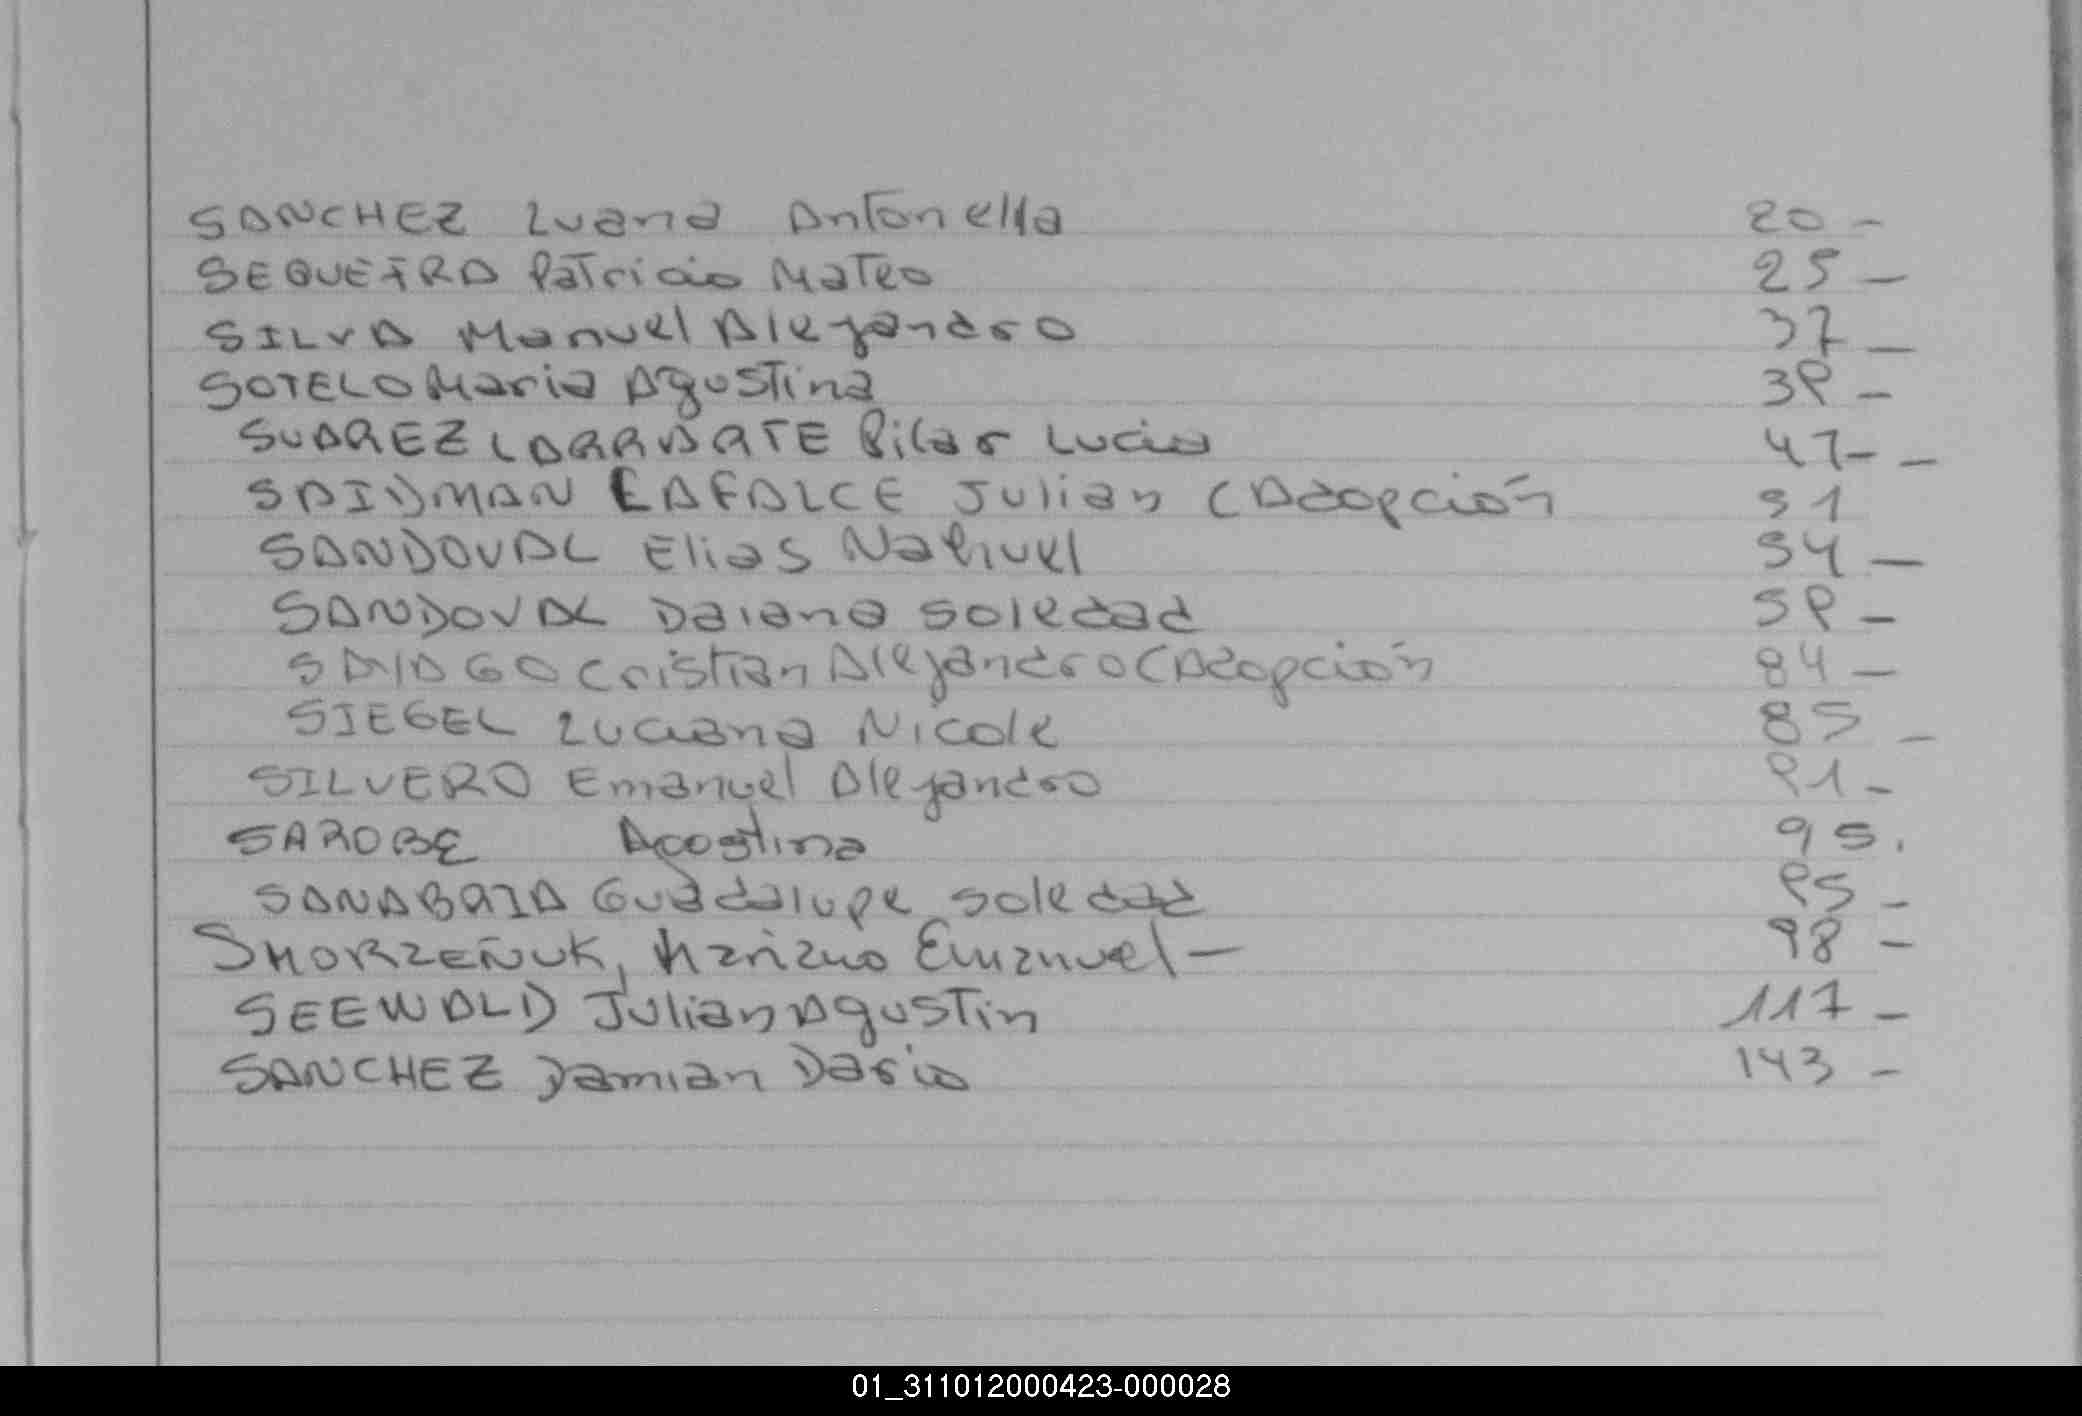 SANCHEZ Luana Antonella 20 -
SEQUEIRA Patricio Mateo 25 -
SILVA Manuel Alejandro 37 -
SOTELO Maria Agustina 39 -
SUAREZ LARRARTE Pilar Lucia 47 - -
SAIDMAN LAFALCE Julian (Adopción 51
SANDOVAL Elias Nahuel 54 -
SANDOVAL Daiana Soledad 59 -
Cristian Alejandro (Adopción 84 -
SIEGEL Luciana Nicole 85 -
SILVERO Emanuel Alejandro 91 -
SAROBE Agostina 95.
SANABRIA Guadalupe Soledad 95 -
Mariano Emanuel - 98 -
SEEWALD Julian Agustin 117 -
SANCHEZ Damian Dario 143 -
01_311012000423-000028